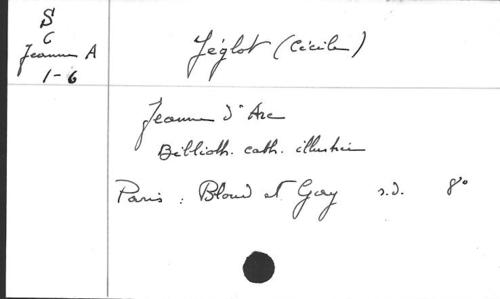 S
C
Jeanne A
1-6
Jéglot (Cécile)
Jeanne d'Arc
Biblioth. cath. illustrée
Paris : Bloud et Gay s.d. 8°